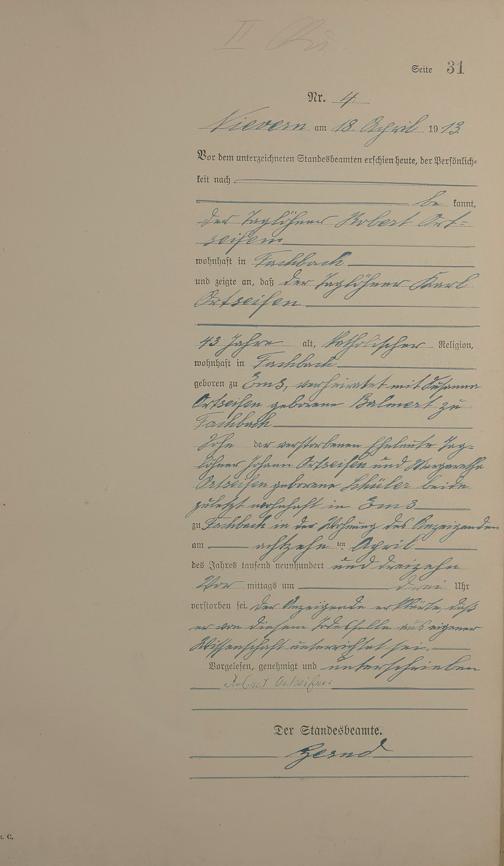 II
Seite 31
Nr. 4
Nievern am 18 April 1913
Vor dem unterzeichneten Standesbeamten erschien heute, der Persönlich-
keit nach
be kannt,
der Taglöhner Robert Ort-
seifen
wohnhaft in Fachbach
und zeigte an, daß der Taglöhner Karl
Ortseifen
43 Jahre alt, katholischer Religion,
wohnhaft in Fachbach
geboren zu Ems, verheiratet mit Susanna
Ortseifen geborene Balmert zu
Fachbach
Sohn der verstorbenen Eheleute Tag-
löhner Johann Ortseifen und Margaretha
Ortseifen geborene Schüler beide
zuletzt wohnhaft in Ems
zu Fachbach in der Wohnung des Anzeigenden
am achtzehn ten April
des Jahres tausend neunhundert und dreizehn
Vor mittags um drei Uhr
verstorben sei. Der Anzeigende erklärte, daß
er von diesem Todesfalle aus eigener
Wissenschaft unterrichtet sei.
Vorgelesen, genehmigt und unterschrieben
Robert Ortseifen
Der Standesbeamte.